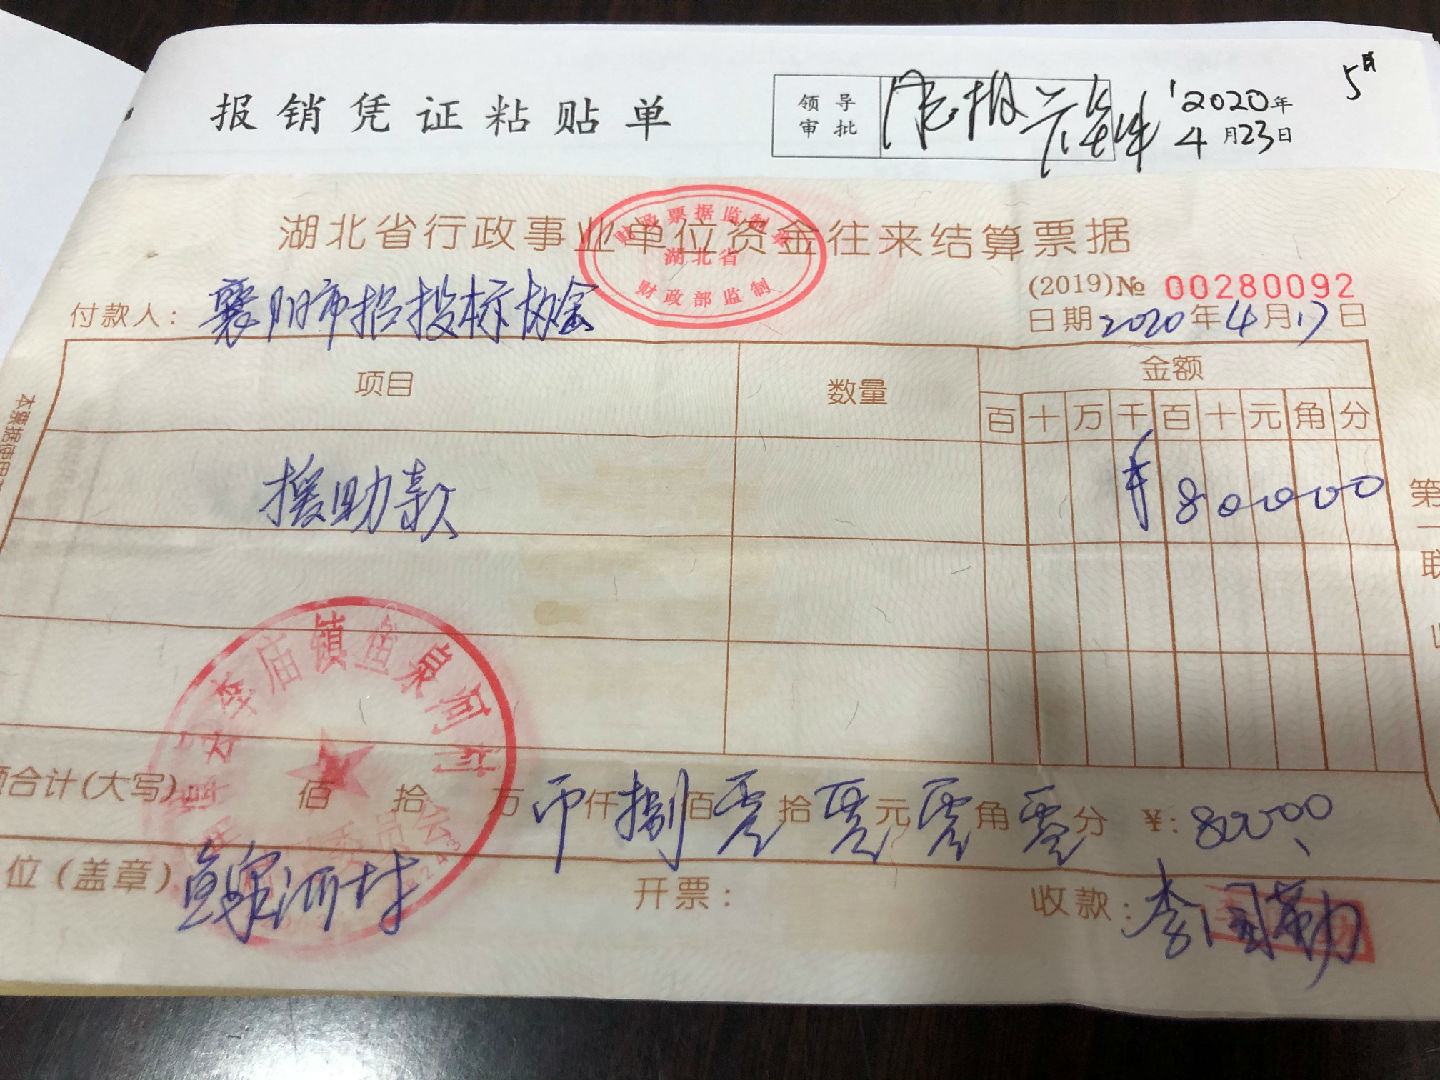 5月
报销凭证粘贴单
领导审批
2020年4月23日
湖北省行政事业单位资金往来结算票据
财政票据监制章
湖北省
财政部监制
(2019)№ 00280092
付款人：襄阳市招投标协会
日期 2020年4月17日
项目 数量 金额
百十万千百十元角分
援助款 ¥80000
李庙镇鱼泉河村
委员会
合计(大写) 佰 拾 万 币仟捌百零拾零元零角零分 ¥:800.00
位（盖章）鱼泉河村 开票： 收款：李国勤
本票据使用
第一联